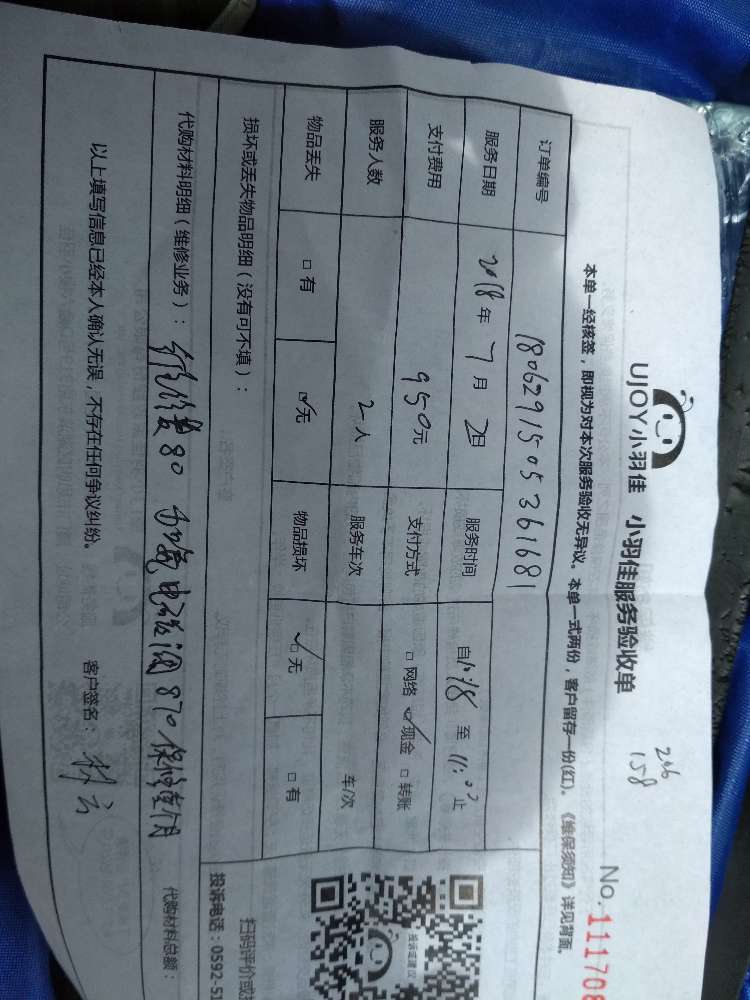 UJOY小羽佳 小羽佳服务验收单
246
158
No.111708
本单一经核签，即视为对本次服务验收无异议。本单一式两份，客户留存一份(红)。《维保须知》详见背面。
订单编号 1806291505361681
服务日期 2018年7月2日 服务时间 自 至11:07止
支付费用 950元 支付方式 □网络 ☑现金 □转账
服务人数 2人 服务车次 车/次
物品丢失 □有 ☑无 物品损坏 ☑无 □有
损坏或丢失物品明细（没有可不填）：
代购材料明细（维修业务）： 维修费80 电磁阀870 保修壹个月 代购材料总额：
以上填写信息已经本人确认无误，不存在任何争议纠纷。 客户签名：
投诉或建议
扫码评价或
投诉电话：0592-5